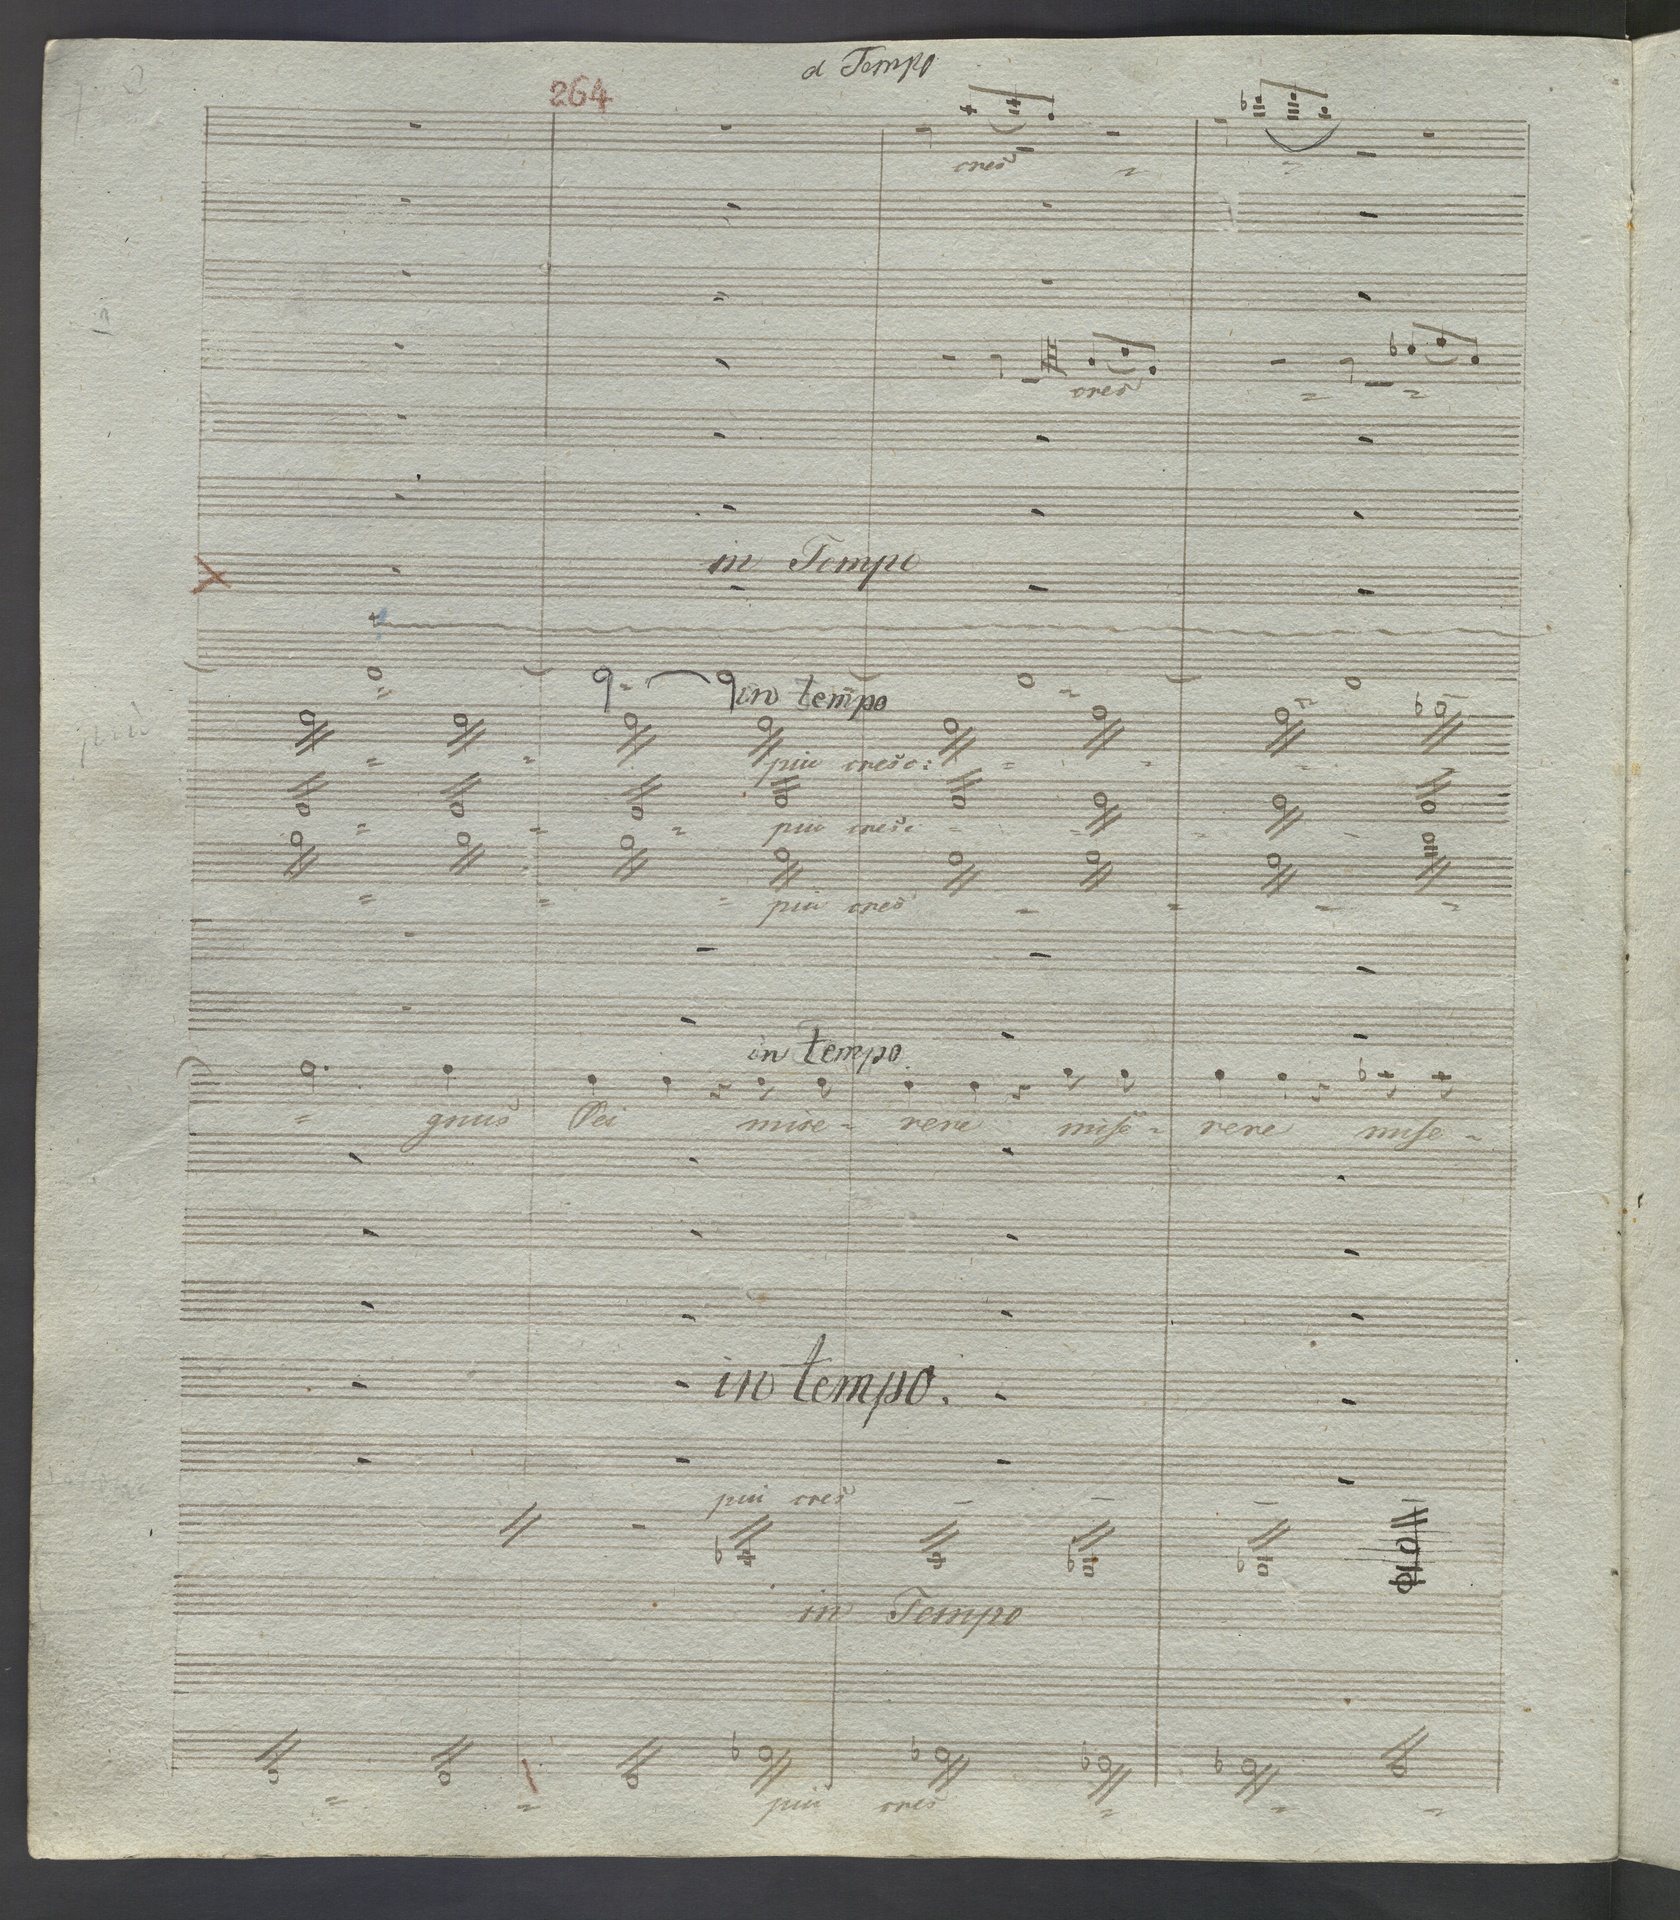 a Tempo
264
cres
cres
in Tempo
in tempo
piu cresc:
piu cresc
piu cres
in tempo
gnus Dei mise- rere mise- rere mise-
in tempo.
piu cres
in Tempo
piu cres